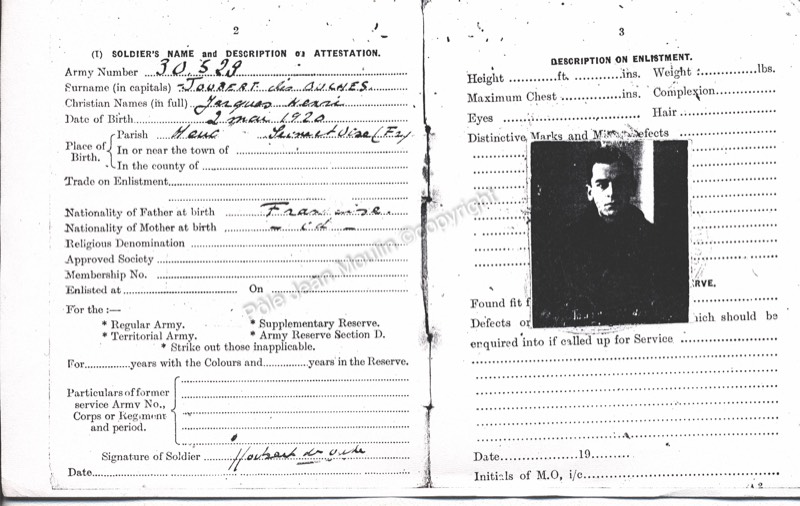 2
(I) SOLDIER'S NAME and DESCRIPTION on ATTESTATION.
Army Number ....30.529
Surname (in capitals) JOUBERT des OUCHES.
Christian Names (in full) Jacques Henri
Date of Birth 2 mai 1920
Place of Birth. { Parish Seine et Oise (Fr)
In or near the town of
In the county of
Trade on Enlistment
Nationality of Father at birth Française.
Nationality of Mother at birth - id -
Religious Denomination
Approved Society
Membership No.
Enlisted at On
For the :—
* Regular Army. * Supplementary Reserve.
* Territorial Army. * Army Reserve Section D.
* Strike out those inapplicable.
For............years with the Colours and............years in the Reserve.
Particulars of former service Army No., Corps or Regiment and period.
Signature of Soldier
Date
3
DESCRIPTION ON ENLISTMENT.
Height ............ft. ............ins. Weight :............lbs.
Maximum Chest ............ins. Complexion
Eyes Hair
Distinctive Marks and Minor Defects
RVE.
Found fit f
Defects or which should be
enquired into if called up for Service
Date............19.........
Initials of M.O, i/c
2
Pôle Jean Moulin ©copyright